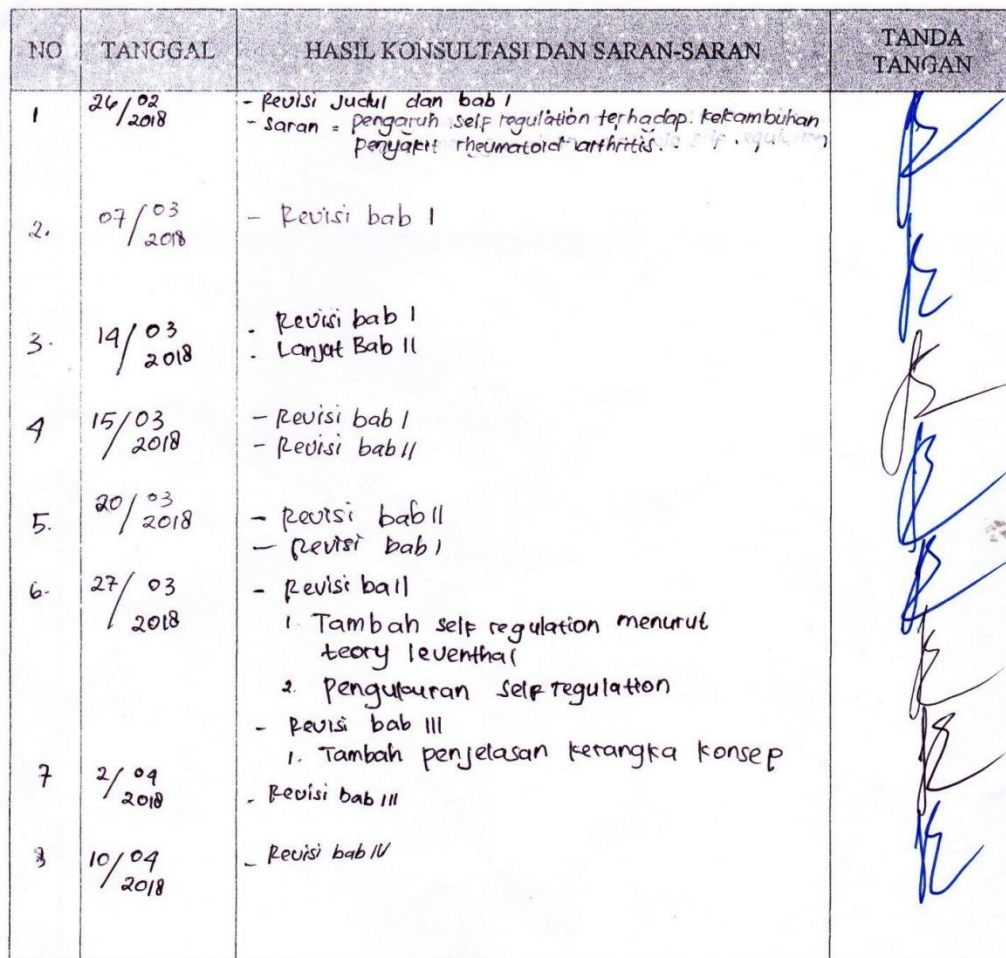 NO TANGGAL HASIL KONSULTASI DAN SARAN-SARAN TANDA TANGAN
1 26/02 2018 - Revisi Judul dan bab 1
- Saran = pengaruh self regulation terhadap kekambuhan
penyakit rheumatoid arthritis.
2. 07/03 2018 - Revisi bab I
3. 14/03 2018 - Revisi bab I
- Lanjat Bab II
4 15/03 2018 - Revisi bab I
- Revisi bab II
5. 20/03 2018 - Revisi bab II
- Revisi bab I
6. 27/03 2018 - Revisi ba II
1. Tambah self regulation menurut
teory leventhal
2. Pengukuran self regulation
- Revisi bab III
1. Tambah penjelasan kerangka konsep
7 2/04 2018 - Revisi bab III
8 10/04 2018 - Revisi bab IV